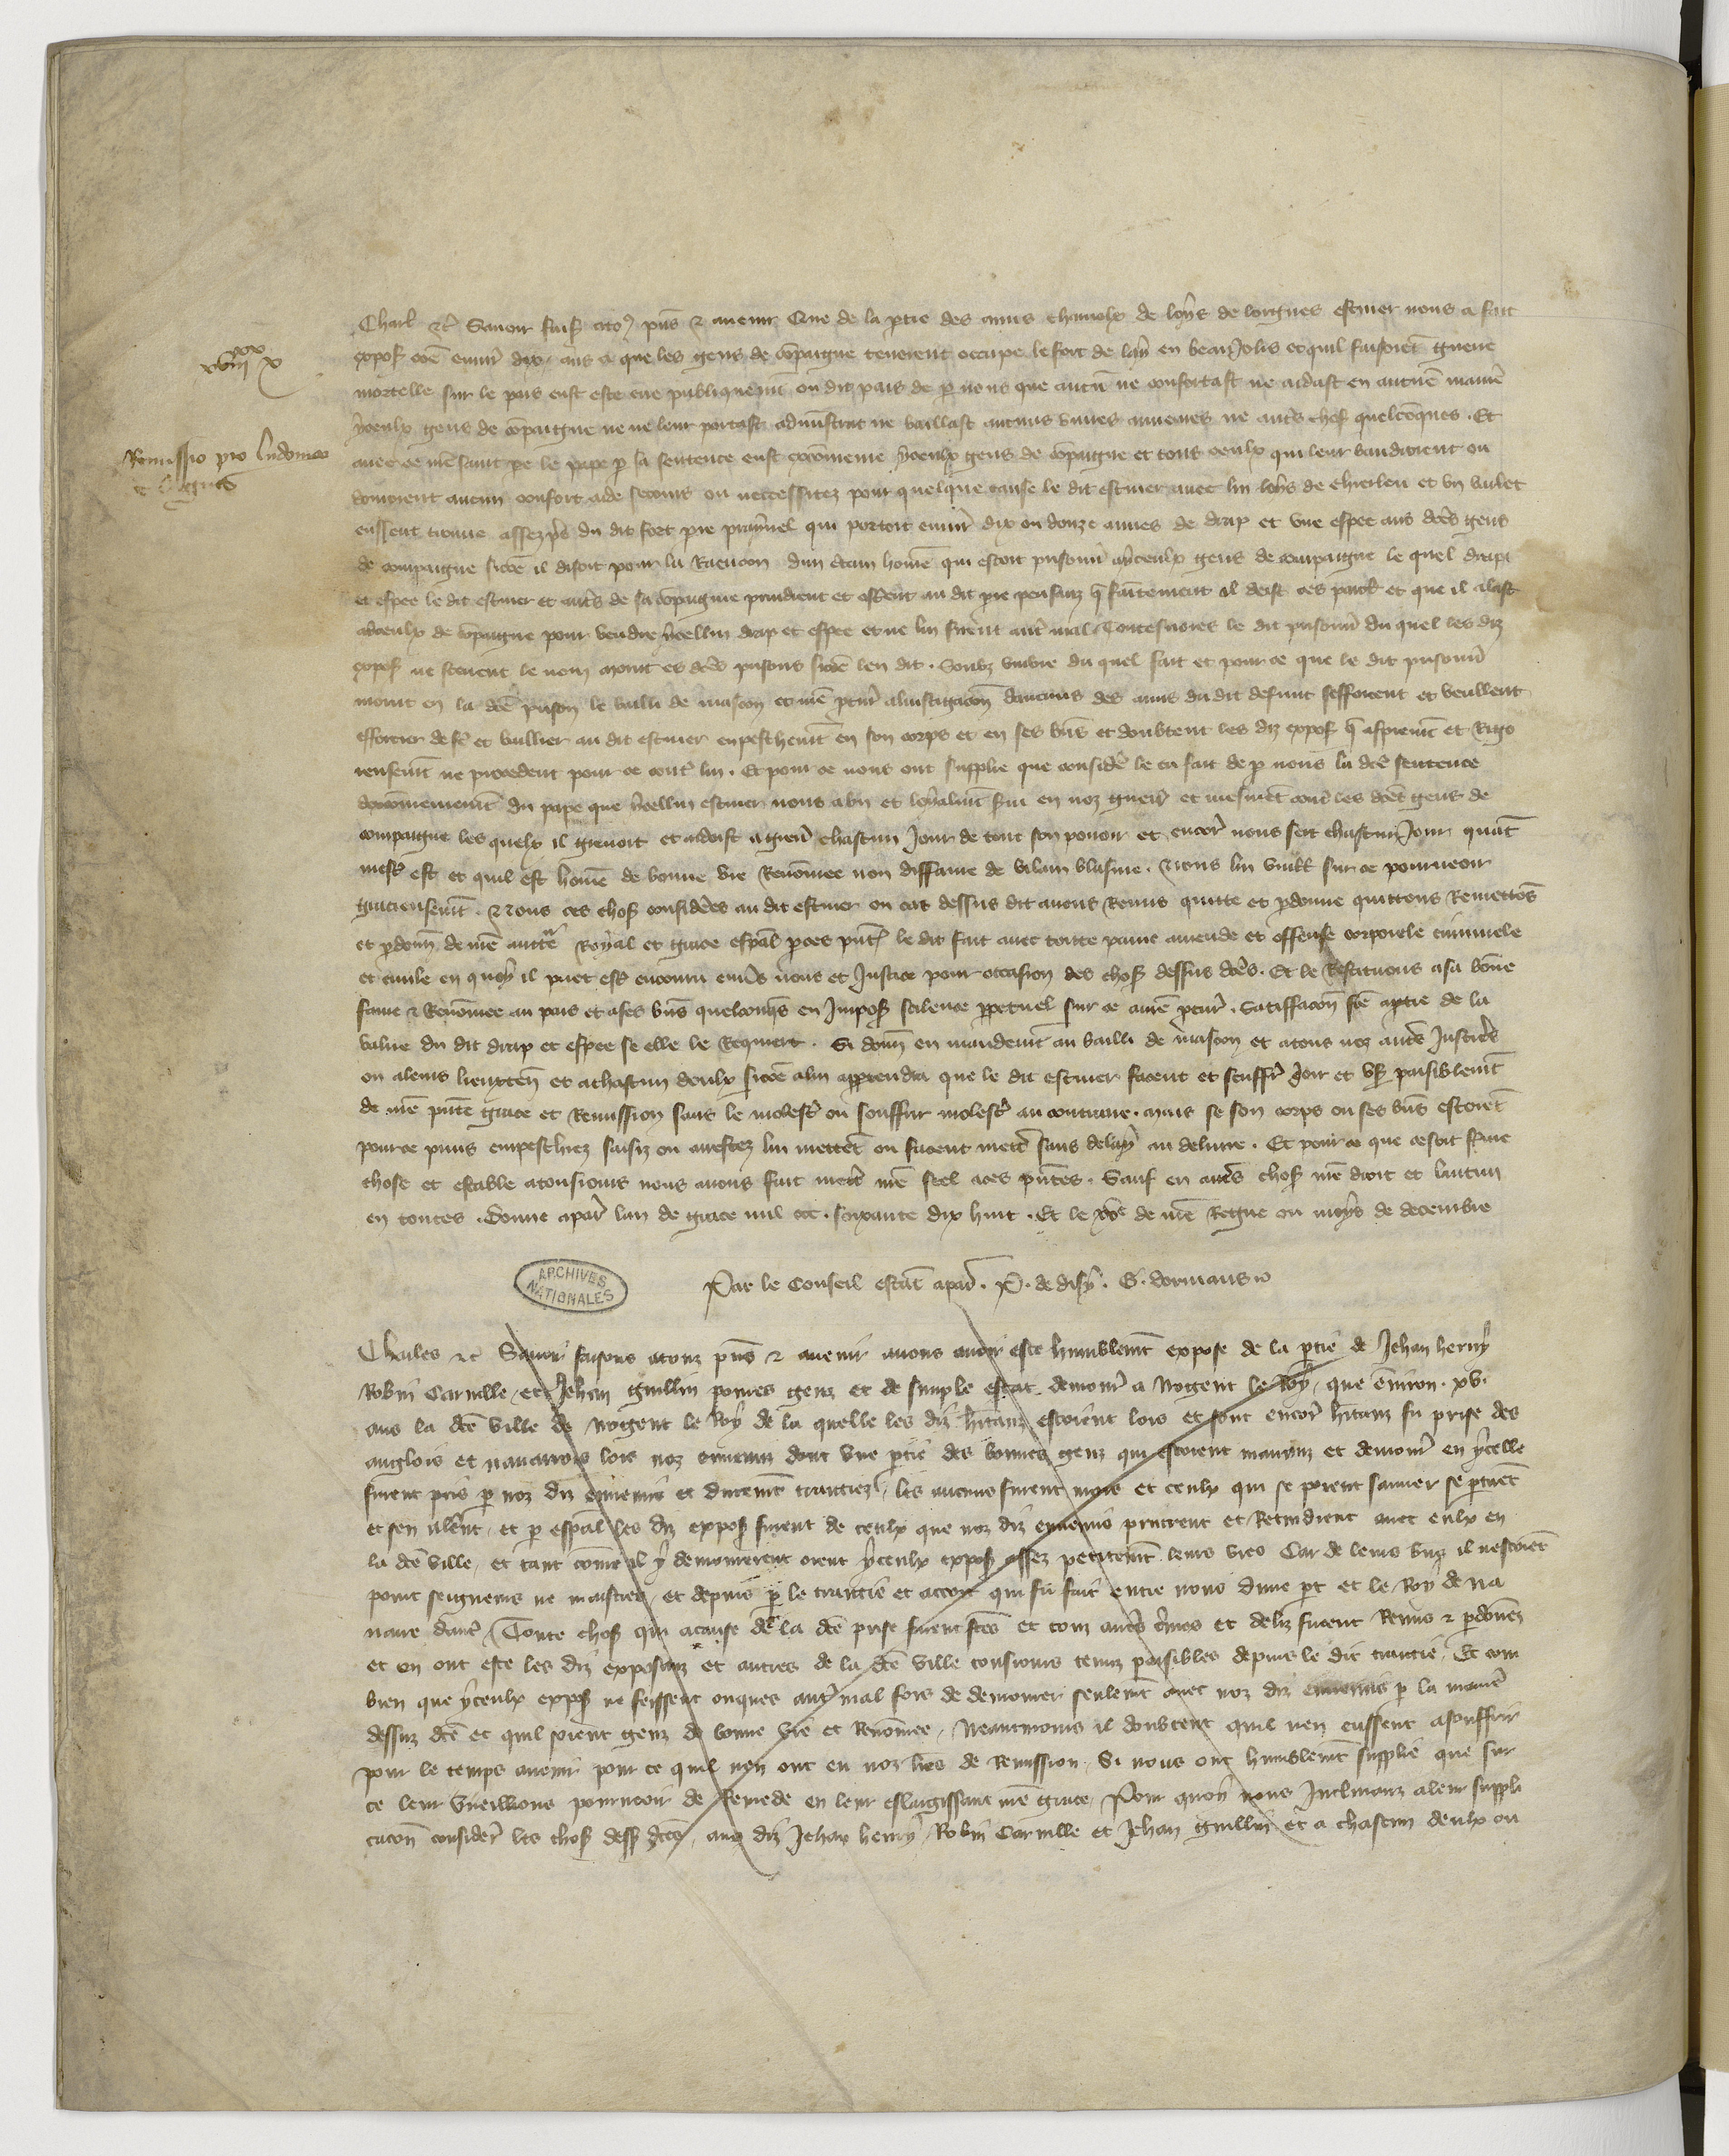 xviii xx x
Remissio pro ludovico
Charl etc Savoir fais atoz pns et avenir Que de la ptie des amis charnelx de loys de lorgues escuier nous a fait
expose coe envir dix ans a que les gens de compaigne tenoient occupe le fort de lay en beaujolis et quil faisoiet guerre
mortelle sur le pais eust este crie publiquemt ou dit pais de p nous que aucu ne confortast ne aidast en aucune manie
yceulx gens de compaigne ne ne leur portast admistrat ne baillast aucuns vivres armeures ne autres chos quelcoques . Et
avec ce nre saint pe le pape p sa sentence eust excomenie yceulx gens de compaigne et tous ceulx qui leur vendroient ou
donroient aucun confort aide secours ou neccessitez pour quelque cause le dit escuier avec lui loys de et un vallet
eussent trouve assez pres du dit fort pre qui portoit envir dix ou douze aunes de drap et une espee aus dces gens
de compaigne sicoe il disoit pour la Raencon dun ctain home qui estoit prisonn a yceulx gens de compaigne le quel drap
et espee le dit escuier et autrs de sa compaignie prindrent et osteret au dit pre pensanz q faintement il deist ces paroles et que il alast
a yceulx de compaigne pour vendre ycellui drap et espee et ne lui firent autr mal Toutesvoies le dit prisonn du quel les diz
expos ne scevent le nom morut es dces prisons sicoe len dit . Soubz umbre du quel fait et pour ce que le dit prisonn
morut en la dce prison le bailli de mascon et nre procur a linstigacon daucuns des amis du dit defunt sefforcent et veullent
efforcier de fe et baillier au dit escuier enpeschemt en son corps et en ses bns et doubtent les diz expos q asprement et Rigo
reusemt ne procedent pour ce contr lui . Et pour ce nous ont supplie que consider le cri fait de p nous la dce sentence
dexcomeniemt du pape que ycellui escuier nous a bn et loyalmt svi en noz guerr et mesmet contr les dces gens de
compaigne les quelx il grevoit et aidoit a grever chascun jour de tout son povoir et encor nous sert chascun jour quat
mest est et quil est home de bonne vie Renommee non diffame de vilain blasme . Nous lui vueill sur ce pourveoir
gracieusemt . Nous ces chos considees au dit escuier ou cas dessus dit avons Remis quitte et pdonne quittons Remettos
et pdonn de nre auctte Royal et grace espal p ces pntes le dit fait avec toute paine amende et offense corporele criminele
et civile en quoy il puet estr encouru envrs nous et Justice pour occasion des chos dessus dces . Et le Restituons a sa bone
fame et Renommee au pais et a ses bns quelconqs en Impos scilence ppetuel sur ce a nre pcur . Satiffacon fce a ptie de la
value du dit drap et espee se elle le Requiert . Si donn en mandemt au bailli de mascon et a tous noz autrs Justicrs
ou a leurs lieuxten et a chascun deulx sicoe a lui appartendra que le dit escuier facent et seuffr joir et us paisiblemt
de nre pnte grace et Remission sans le molest ou souffrir molest au contraire . mais se son corps ou ses bns estoiet
pour ce prins empeschiez saisiz ou arrestez lui mettet ou facent mettr sans delay au delivre . Et pour ce que ce soit fme
chose et estable a tousjours nous avons fait mettr nre scel a ces pntes . Sauf en autrs chos nre droit et lautrui
en toutes . Donne a par lan de grace mil ccc . soixante dix huit . Et le xve de nre Regne ou moys de decembre
ARCHIVES NATIONALES
Par le Conseil estat a par . P . de disy . G . dormans
Charles etc Savoir faisons a touz pns et avenir avons avoir este humblemt expose de la ptie de Jehan henry
Robin Carville et Jehan guillin povres genz et de simple estat demour a Nogent le Roy , que environ . xv .
ans la dce ville de Nogent le Roy de la quelle les diz hitanz estoient lors et sont encor hitanz fu prise des
anglois et navarrois lors noz ennemis dont une ptie des bonnes genz qui estoient manans et demour en ycelle
furent pris p noz diz ennemis et duremt traictiez , les aucuns furent mors et ceulx qui se porent sauver se ptiret
et sen aleret , et p espal les diz expos furent de ceulx que noz diz ennemis prirent et Retindrent avec eulx en
la dce ville , et tant come il y demourerent orent yceulx expos assez petitemt leurs vies Car de leurs bns il nestoiet
point seigneurs ne maistres , et depuis p le traictie et accort qui fu fait entre nous dune pt et le Roy de na
varre dautr Toute chos qui a cause de la dce prise furent fces et touz autrs crimes et deliz furent Remis et pdonez
et en ont este les diz exposanz et autres de la dce ville tousjours tenuz paisibles depuis le dit traictie , Et com
bien que yceulx expos ne feissent onques autr mal fors de demourer seulemt avec noz diz ennemis p la manie
dessuz dce et quil soient genz de bonne vie et Renommee , Neantmoins il doubtent quil nen eussent a souffrir
pour le temps avenir pour ce quil nen ont eu noz lres de Remission , Si nous ont humblemt supplie que sur
ce leur vueillions pourveoir de Remede en leur eslargissant nre grace , Pour quoy nous Inclinanz a leur suppli
cacon consider les chos dess dces , aus diz Jehan henry , Robin Carville et Jehan guillin et a chascun deulx ou